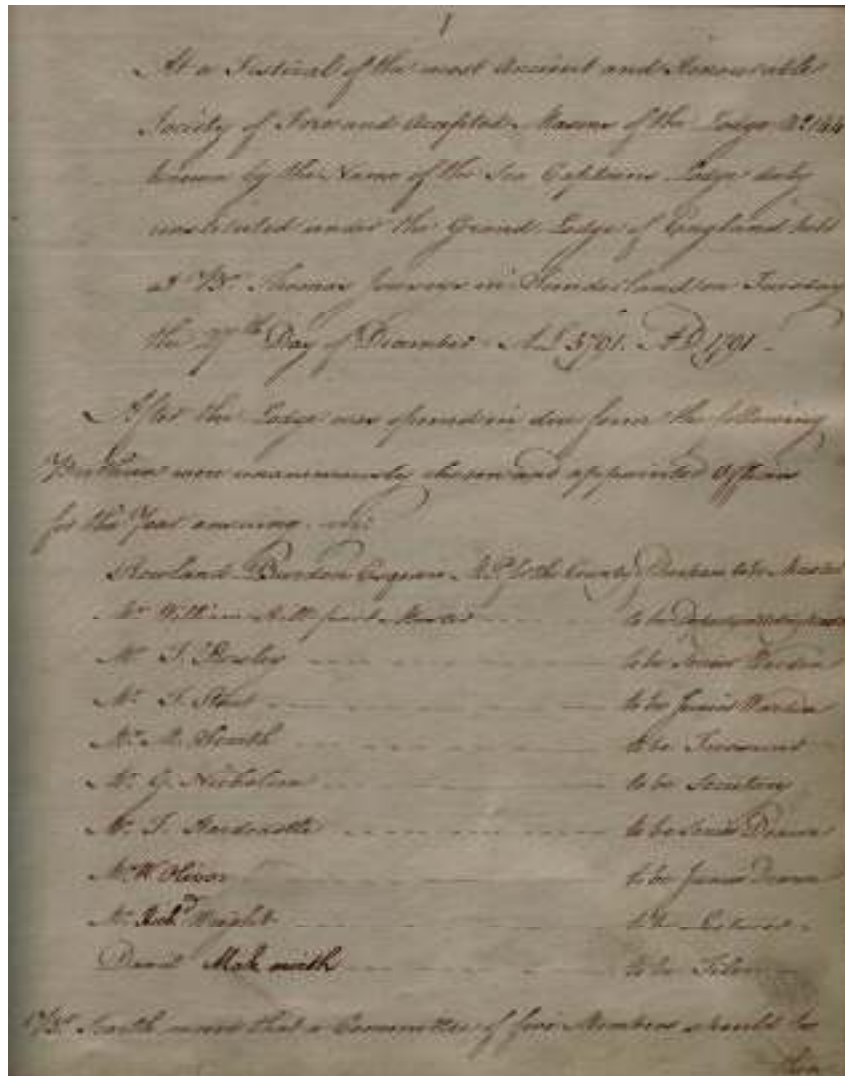 1
At a Festival of the most Ancient and Honourable
Society of Free and Accepted Masons of the Lodge No. 144
known by the Name of the Sea Captains Lodge duly
constituted under the Grand Lodge of England held
at Br. Thomas in Sunderland on Tuesday
the 27th Day of December A.L. 5791. A.D. 1791.
After the Lodge was opened in due form the following
Brethren were unanimously chosen and appointed Officers
for the Year ensuing viz:
Rowland Burdon Esquire M.P. for the County Durham to be Master
Mr. William past Master to be
Mr. T. to be Senior Warden
Mr. T. to be Junior Warden
Mr. M. to be Treasurer
Mr. G. Nicholson to be Secretary
Mr. T. Hardcastle to be Senior Deacon
Mr. W. Oliver to be Junior Deacon
Mr. Richd. Wright to be
David to be Tiler
Br. moved that a Committee of five Members should be
then